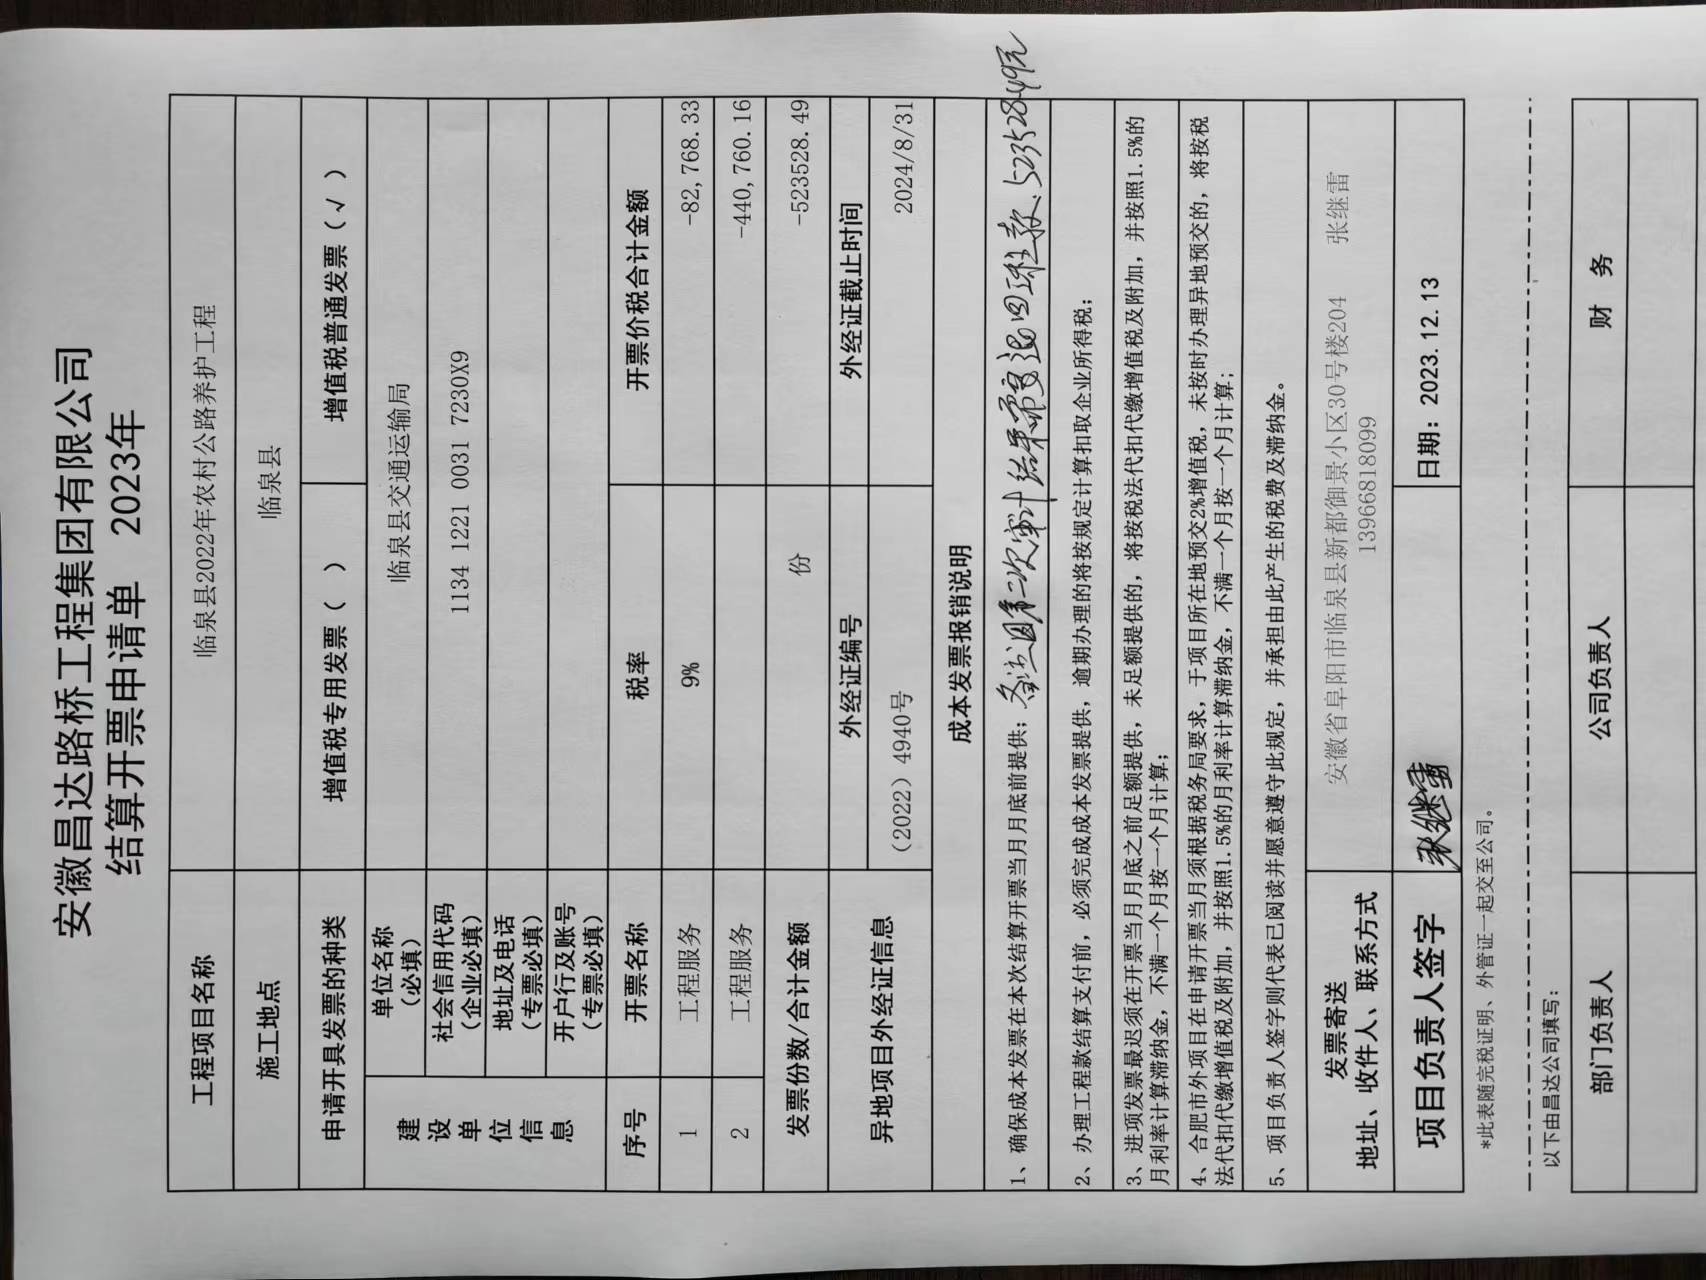 安徽昌达路桥工程集团有限公司
结算开票申请单 2023年
工程项目名称 临泉县2022年农村公路养护工程
施工地点 临泉县
申请开具发票的种类 增值税专用发票（ ） 增值税普通发票（√ ）
建设单位信息
单位名称（必填） 临泉县交通运输局
社会信用代码（企业必填） 1134 1221 0031 7230X9
地址及电话（专票必填）
开户行及账号（专票必填）
序号 开票名称 税率 开票价税合计金额
1 工程服务 9% -82,768.33
2 工程服务 -440,760.16
发票份数/合计金额 份 -523528.49
异地项目外经证信息 外经证编号 外经证截止时间
（2022）4940号 2024/8/31
成本发票报销说明
1、确保成本发票在本次结算开票当月月底前提供；
第二次审计结果需退回工程款，523528.49元
2、办理工程款结算支付前，必须完成成本发票提供，逾期办理的将按规定计算扣取企业所得税；
3、进项发票最迟须在开票当月月底之前足额提供，未足额提供的，将按税法代扣代缴增值税及附加，并按照1.5%的
月利率计算滞纳金，不满一个月按一个月计算；
4、合肥市外项目在申请开票当月须根据税务局要求，于项目所在地预交2%增值税，未按时办理异地预交的，将按税
法代扣代缴增值税及附加，并按照1.5%的月利率计算滞纳金，不满一个月按一个月计算；
5、项目负责人签字则代表已阅读并愿意遵守此规定，并承担由此产生的税费及滞纳金。
发票寄送
地址、收件人、联系方式
安徽省阜阳市临泉县新都御景小区30号楼204 张继雷
13966818099
项目负责人签字 张继雷 日期：2023.12.13
*此表随完税证明、外管证一起交至公司。
以下由昌达公司填写：
部门负责人 公司负责人 财 务